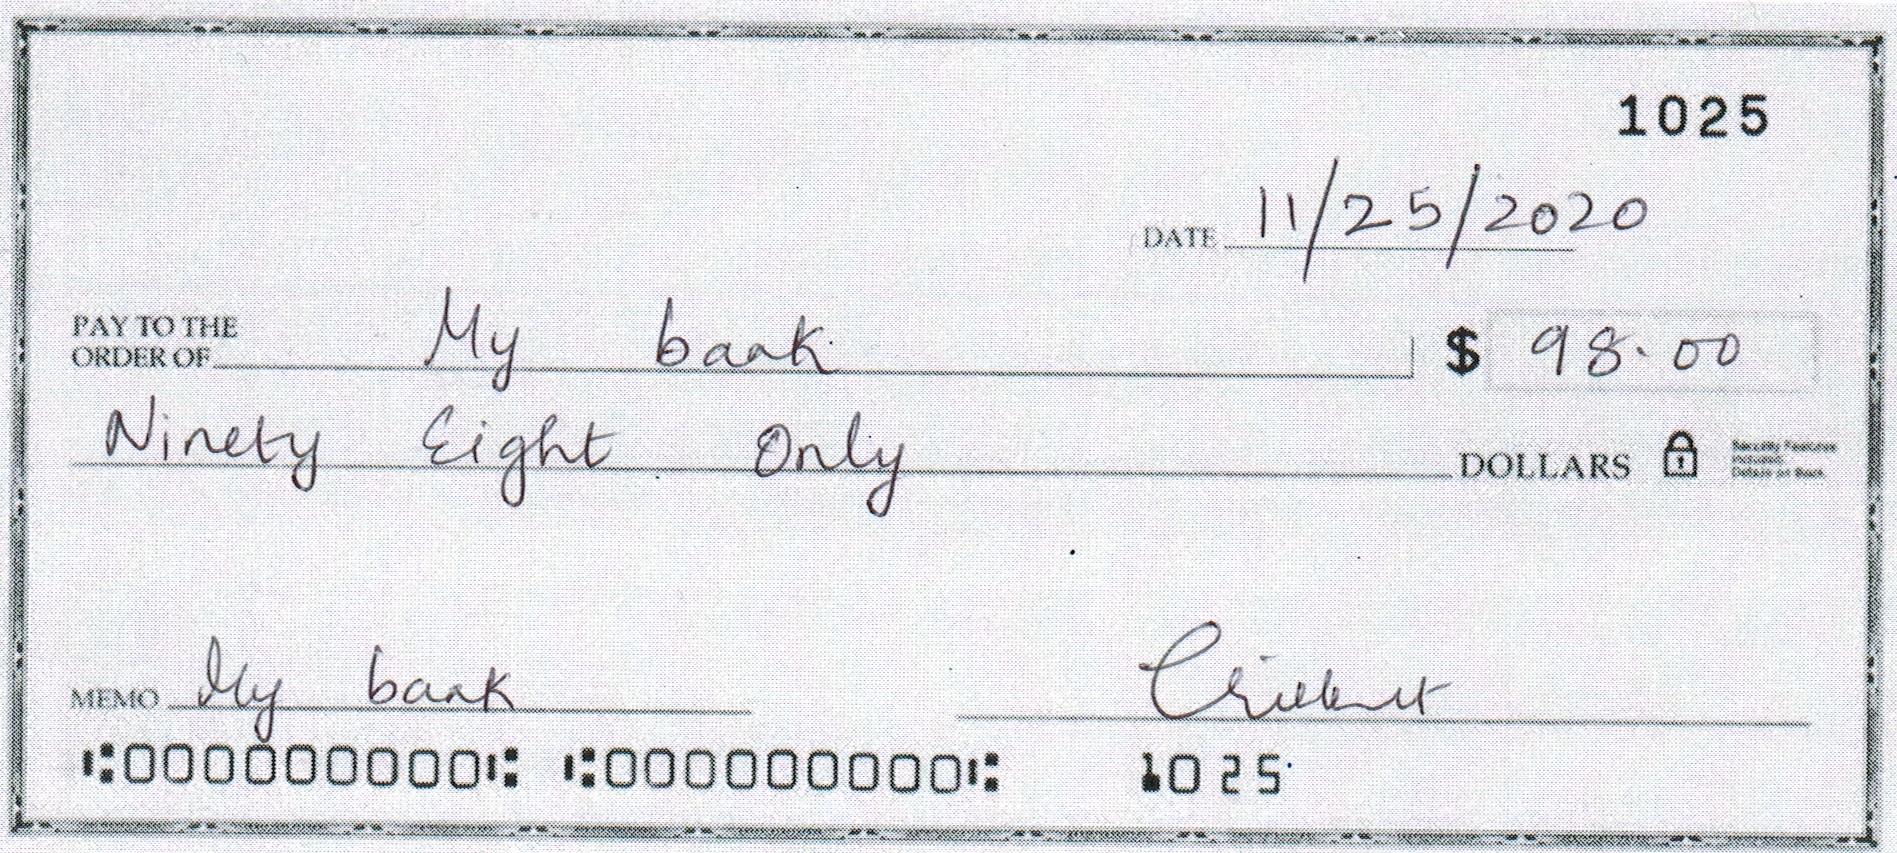 1025
DATE 11/25/2020
PAY TO THE
ORDER OF My bank $ 98.00
Ninety Eight Only DOLLARS
Security Features
Included
Details on Back
MEMO My bank
⑆000000000⑆ ⑆000000000⑆ 1025